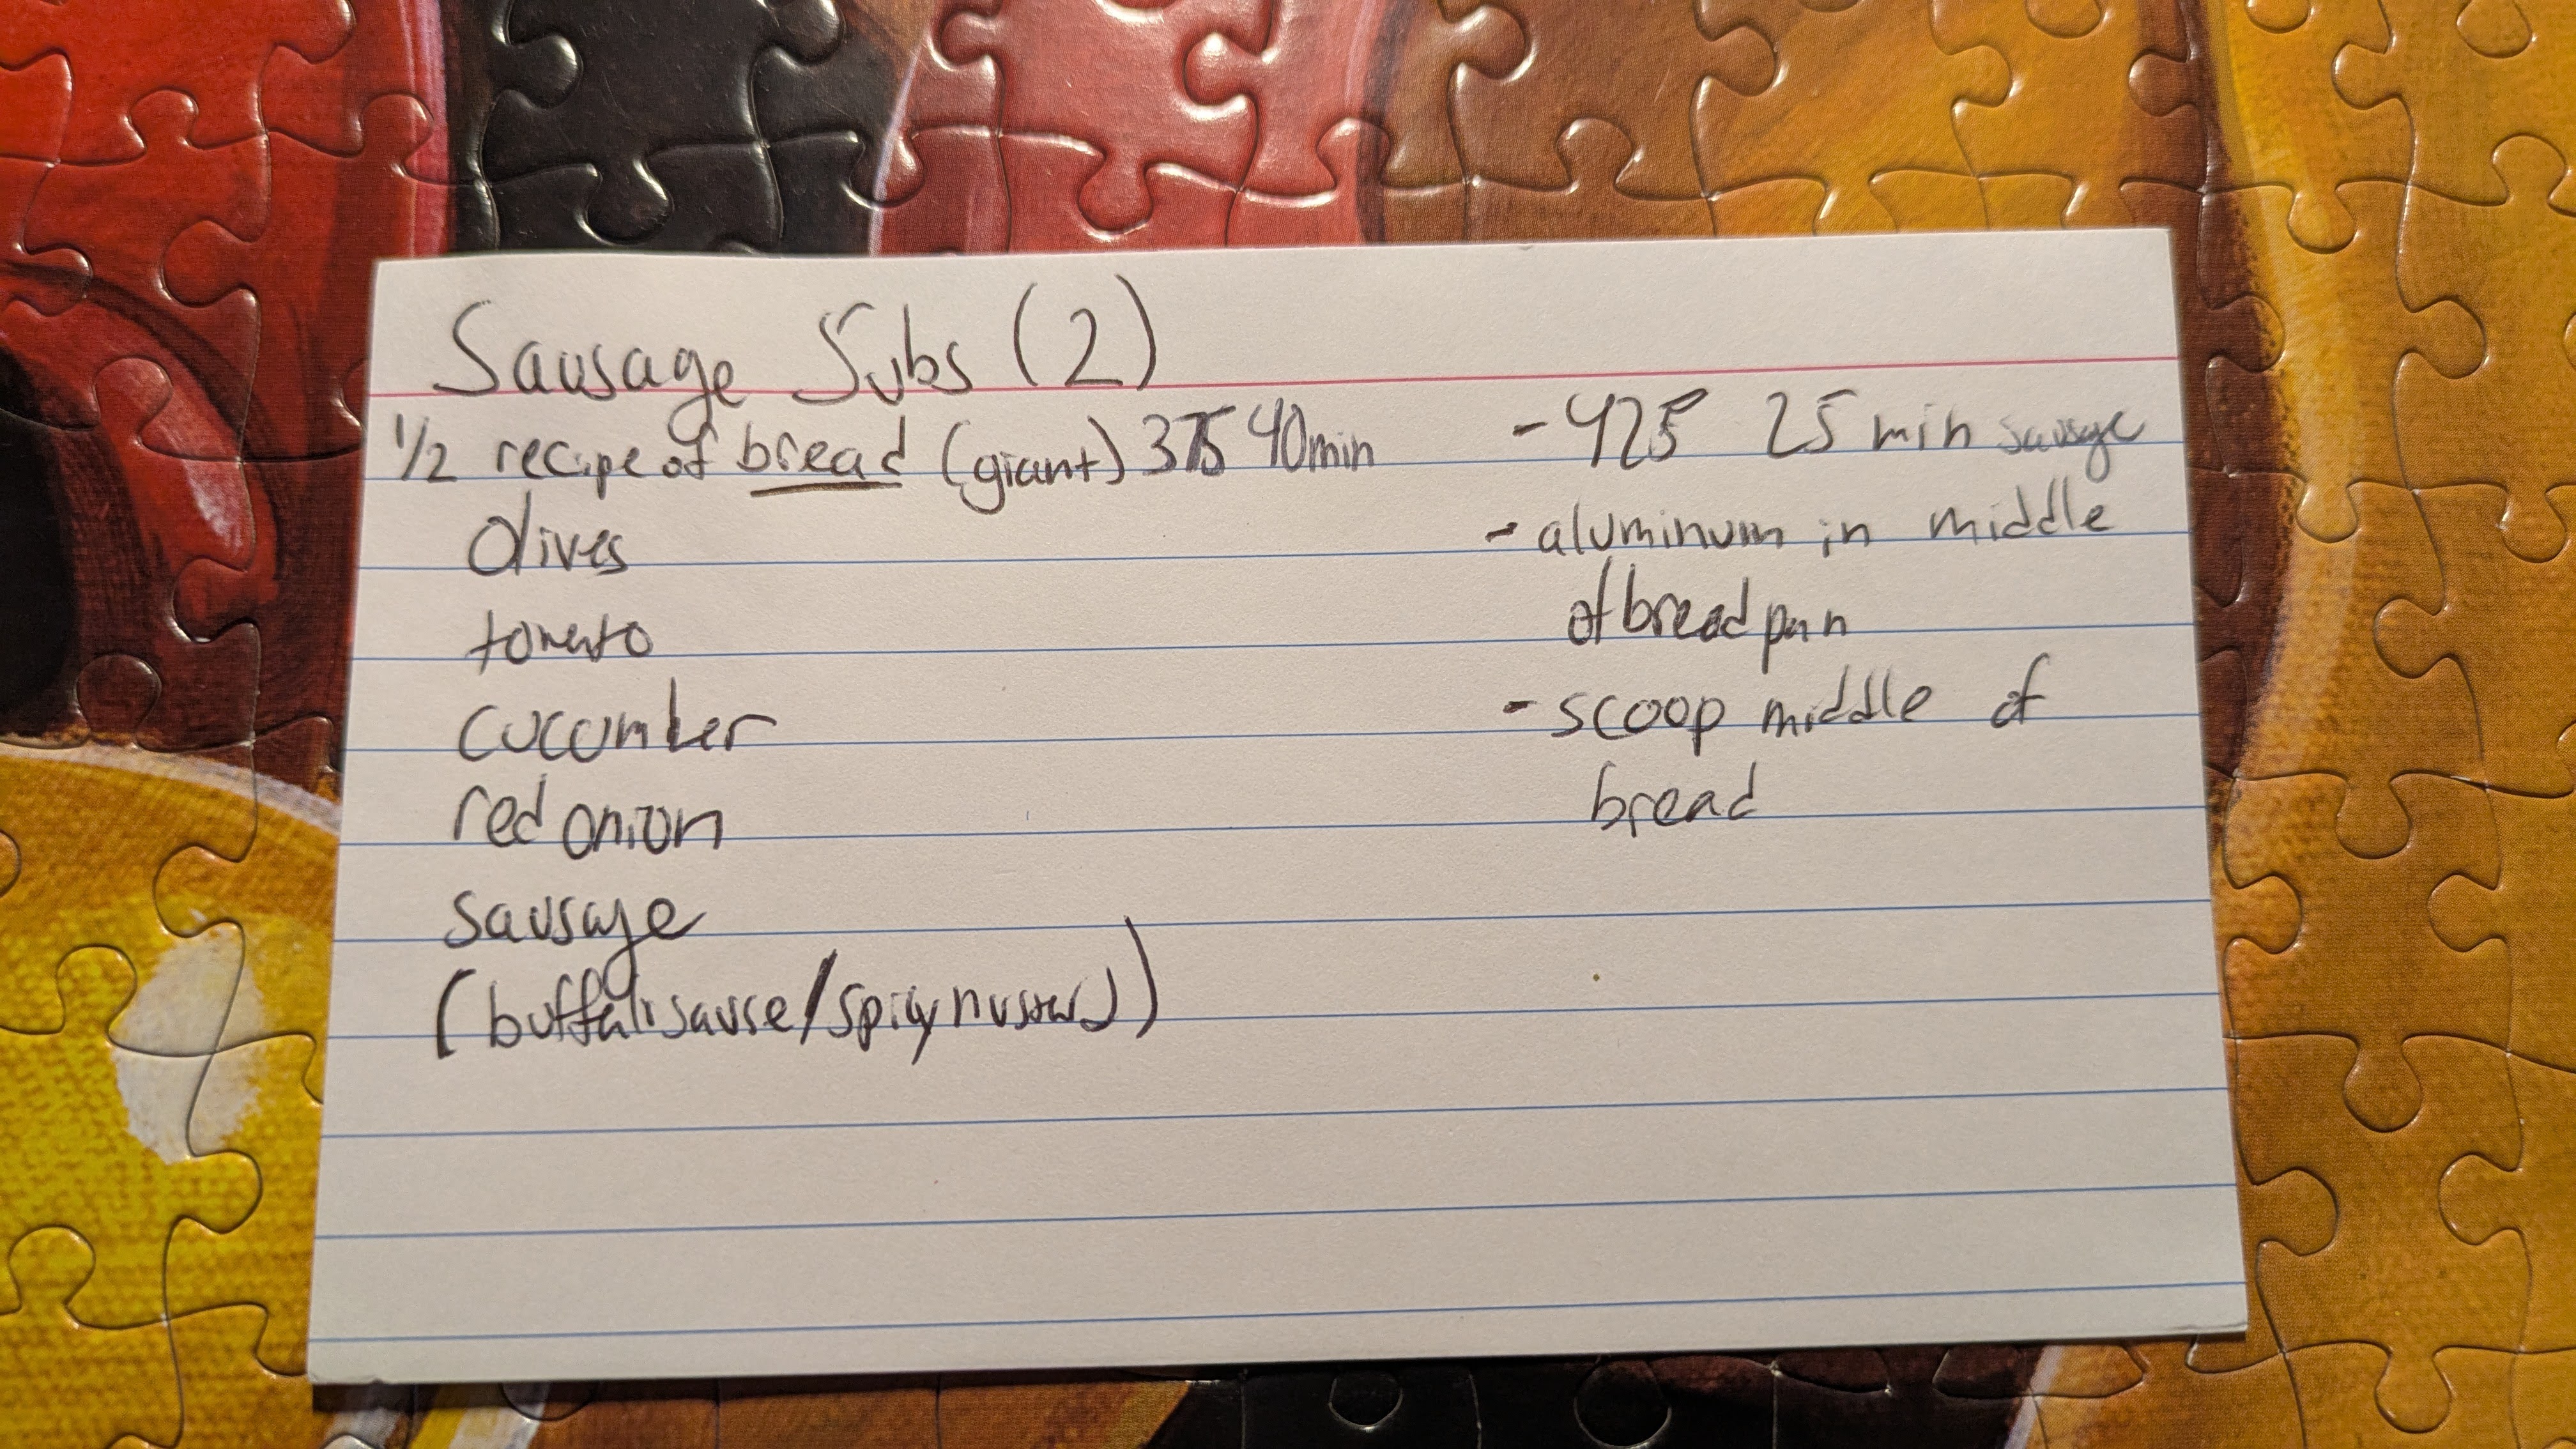 Sausage Subs (2)
1/2 recipe of bread (giant) 375 40min
Olives
tomato
cucumber
red onion
sausage
(buffalo sause/spicy mustard)
- 425 25 min sausage
- aluminum in middle
of bread pan
- scoop middle of
bread